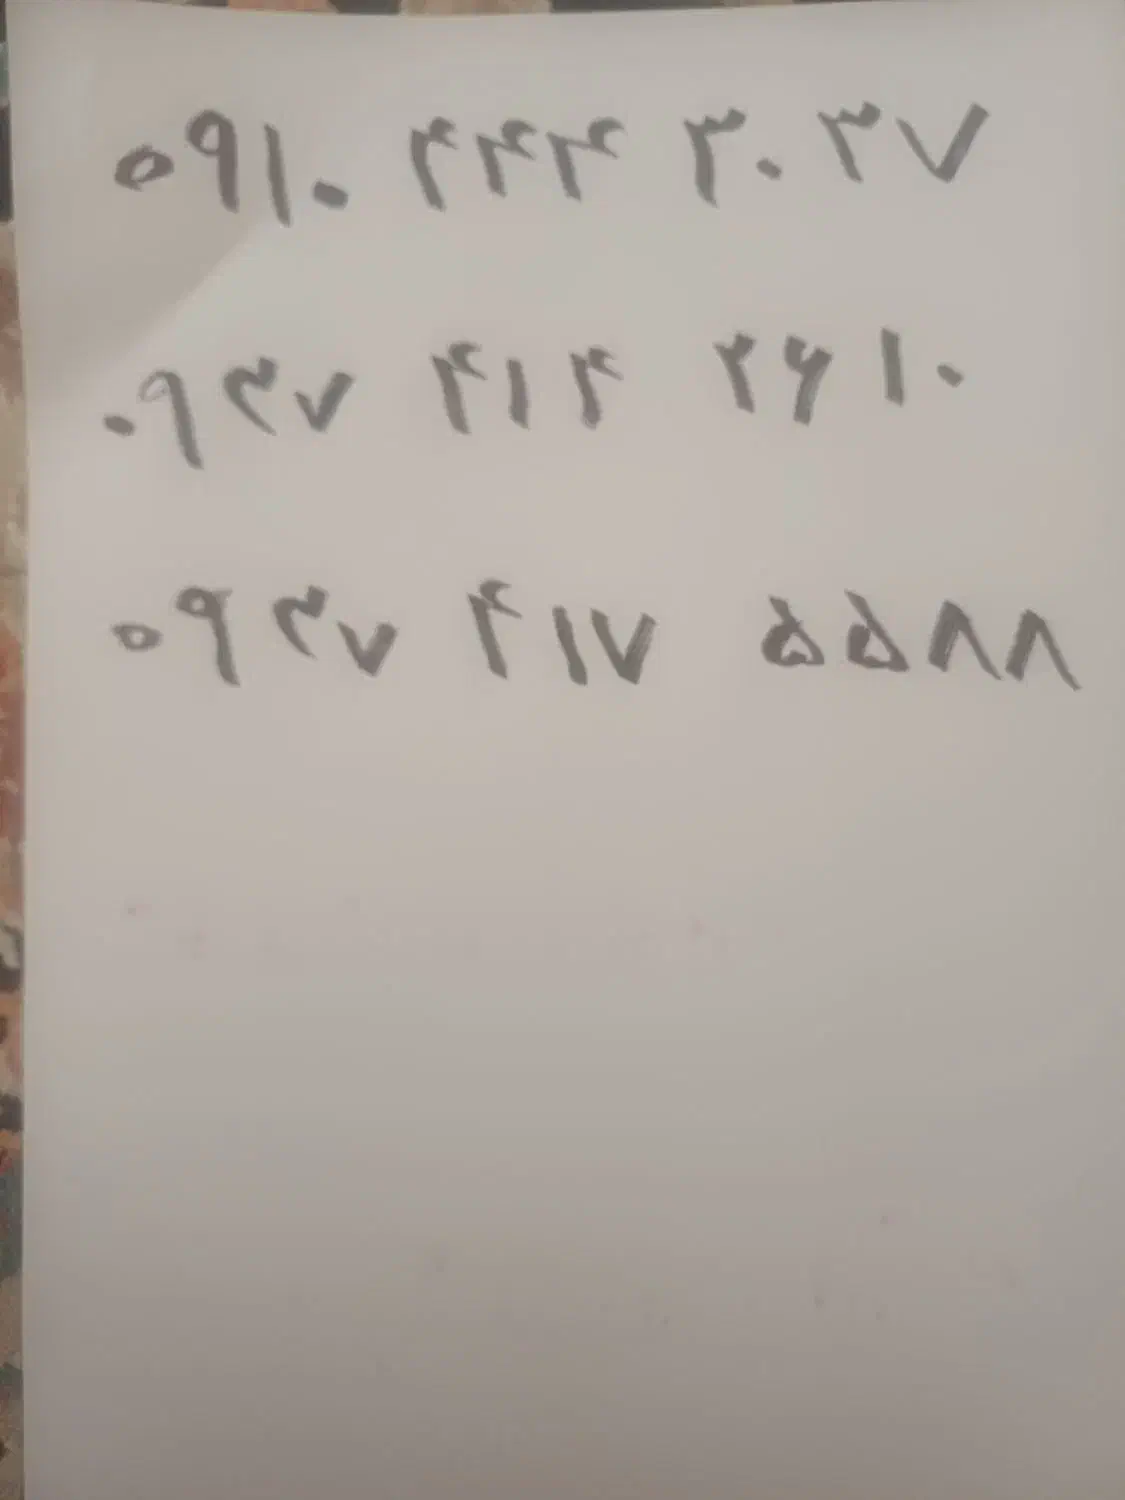 ۰۹۱۰ ۴۴۴ ۳۰۳۷
۰۹۳۷ ۴۱۴ ۲۶۱۰
۰۹۳۷ ۴۱۷ ۵۵۸۸